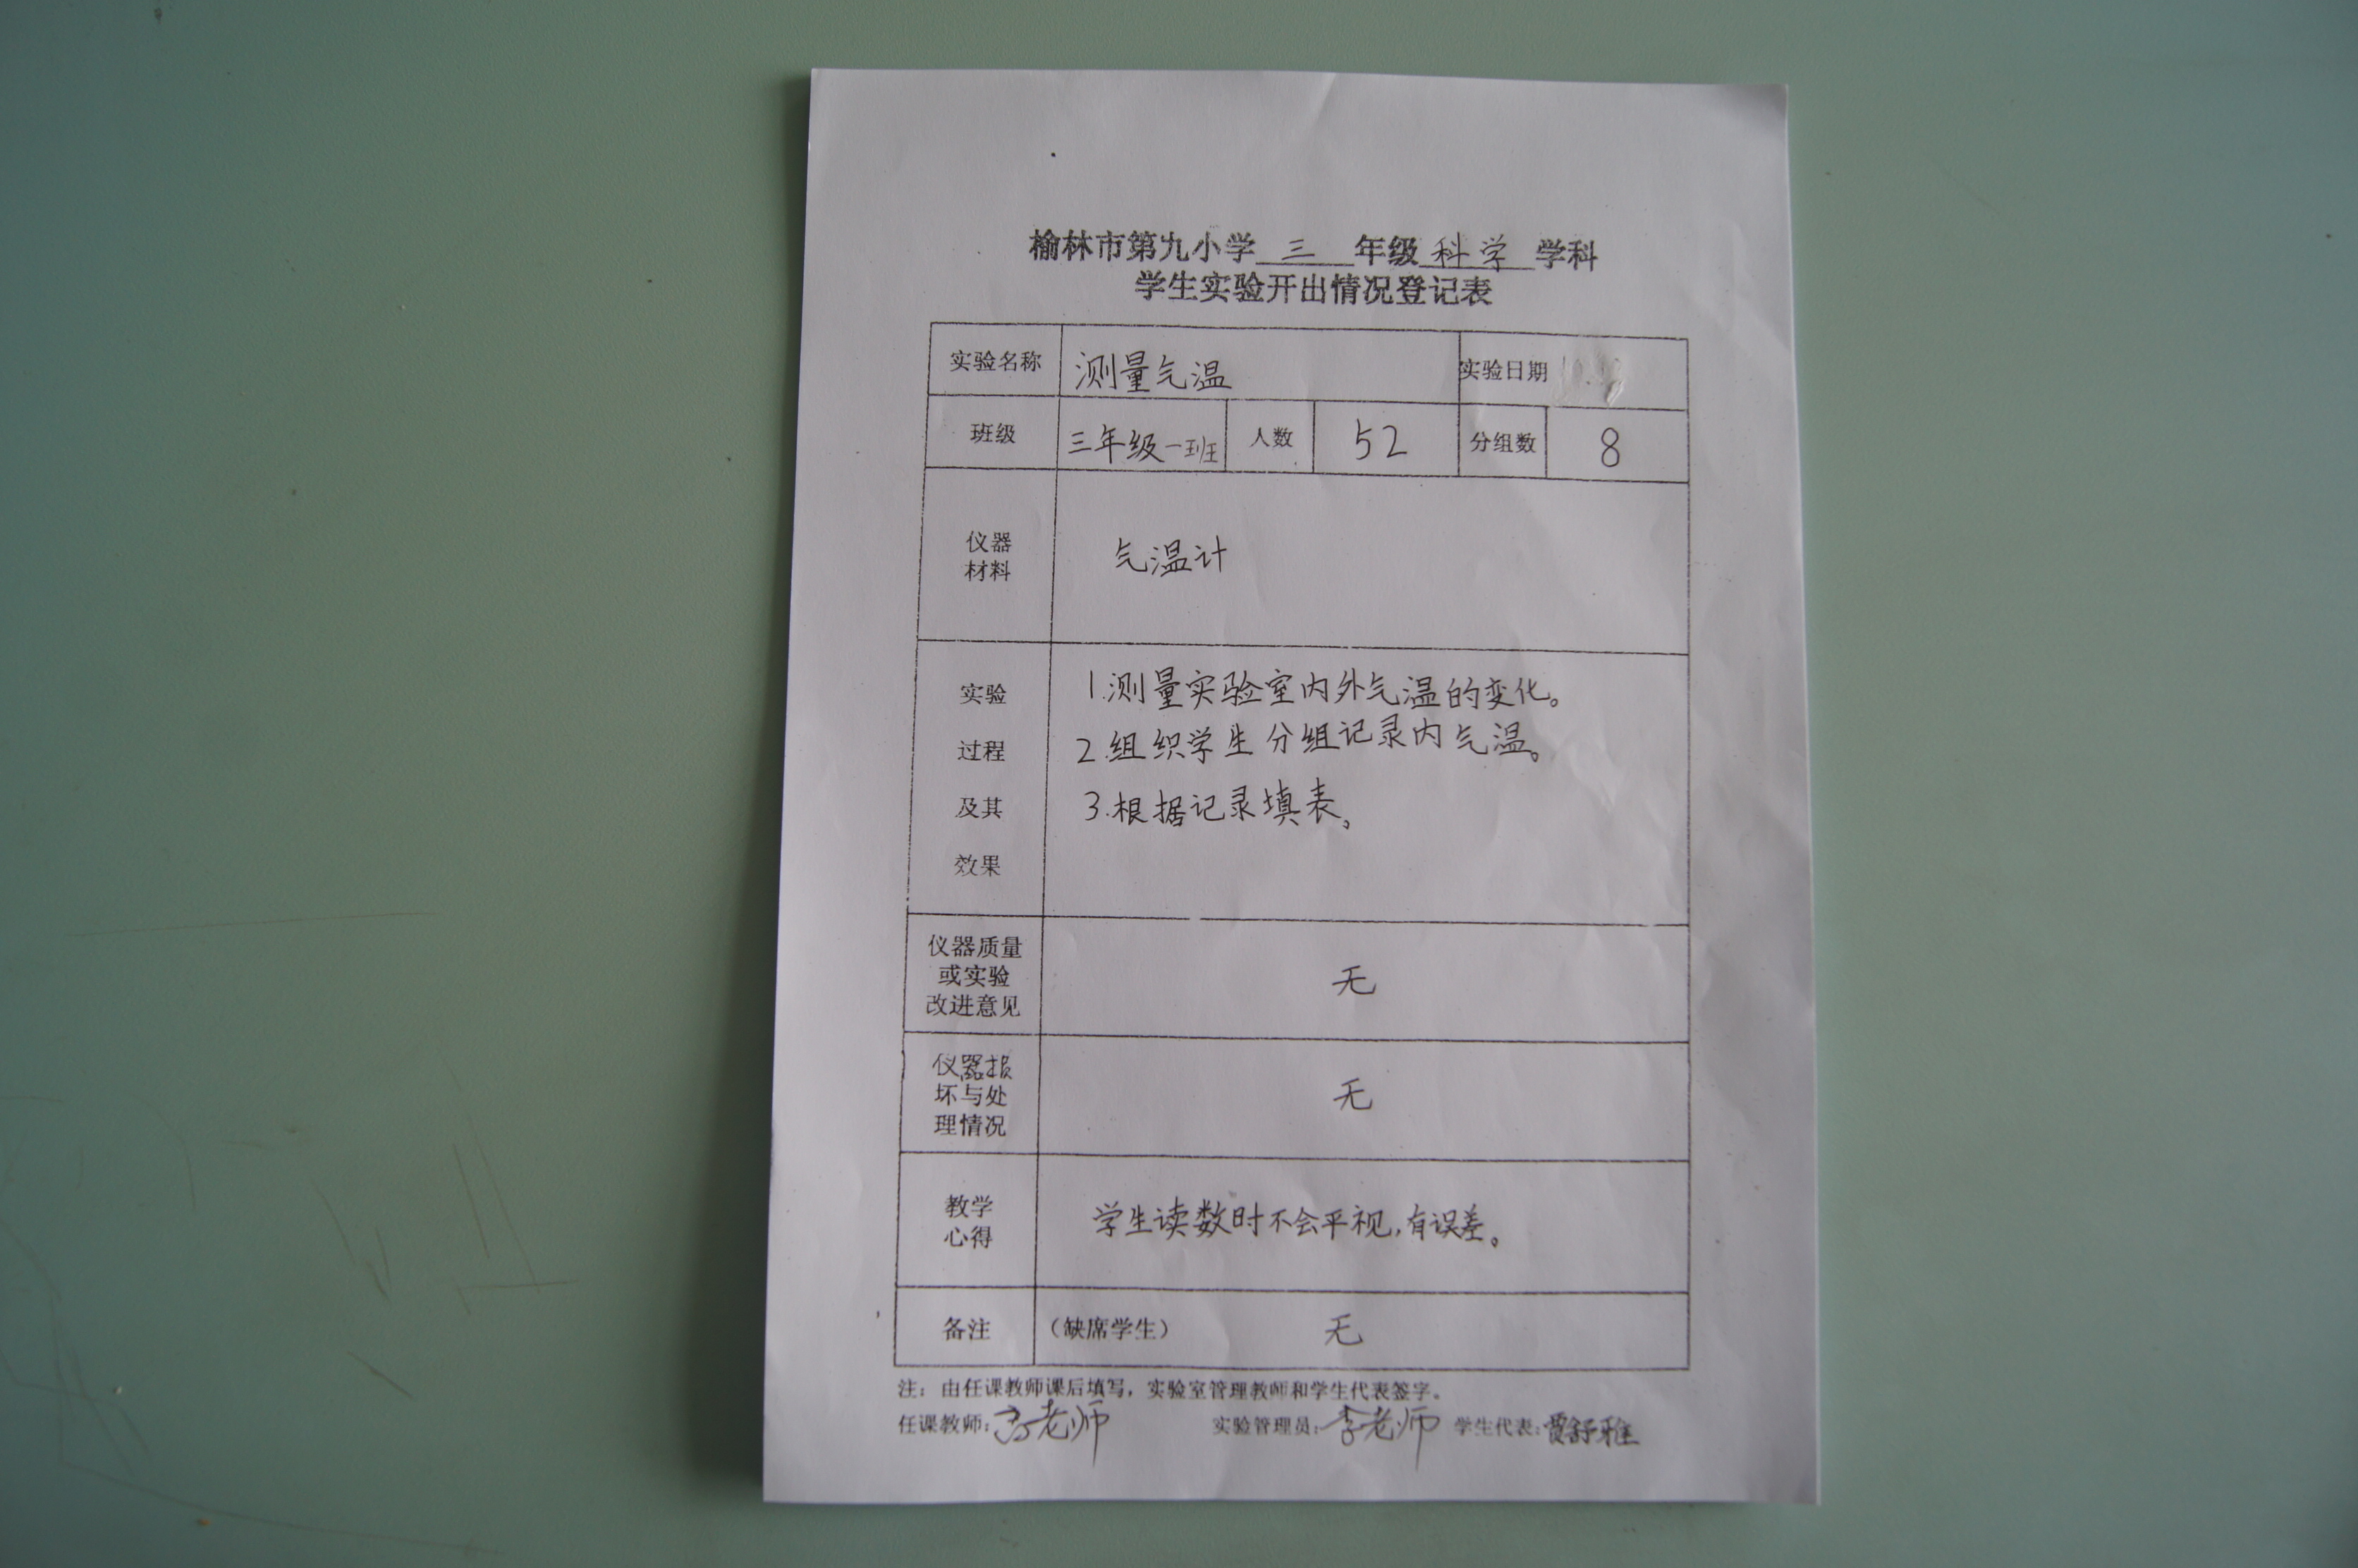 榆林市第九小学 三 年级 科学 学科
学生实验开出情况登记表
实验名称 测量气温 实验日期
班级 三年级一班 人数 52 分组数 8
仪器
材料
气温计
实验
过程
及其
效果
1.测量实验室内外气温的变化。
2.组织学生分组记录内气温。
3.根据记录填表。
仪器质量
或实验
改进意见
无
仪器损
坏与处
理情况
无
教学
心得
学生读数时不会平视,有误差。
备注 (缺席学生) 无
注:由任课教师课后填写,实验室管理教师和学生代表签字。
任课教师: 老师 实验管理员:李老师 学生代表:贾舒雅